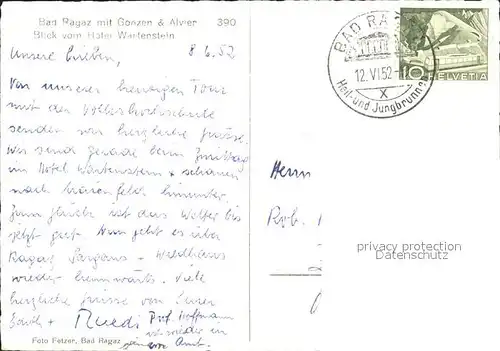 Bad Ragaz mit Gonzen & Alvier 390
Blick vom Hotel Wartenstein
Unsere Lieben, 8.6.52
Von unserer heutigen Tour
mit der Volkshochschule
senden wir herzliche Grüsse.
Wir sind gerade beim Zmittag
im Hotel Wartenstein & schauen
nach hinunter.
Zum Glück ist das Wetter bis
jetzt gut. Nun geht es über
Ragaz Sargans - Waldhaus
wieder heimwärts. Viele
herzliche Grüsse von Euren
+ Ruedi
Prof. Hoffmann
ist wieder in
Amt.
Foto Fetzer, Bad Ragaz
BAD RA
12.VI.52-
X
Heil-und Jungbrunnen
10 HELVETIA
Herrn
Prof.
privacy protection
Datenschutz